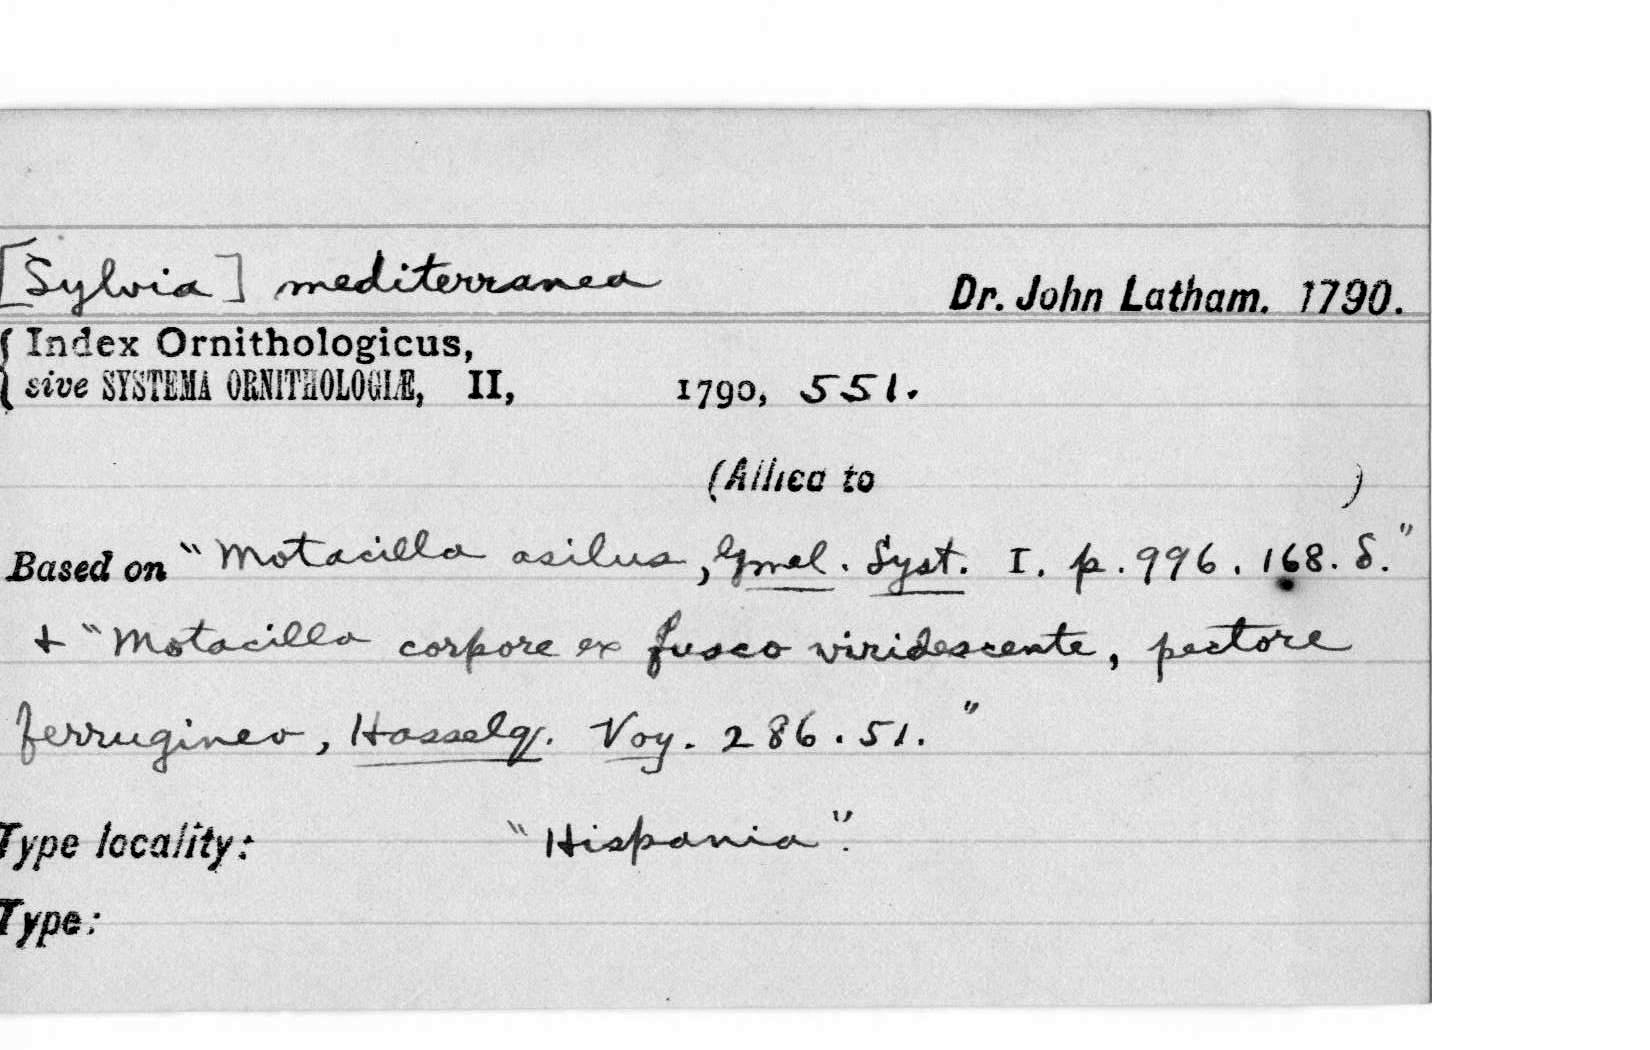 [Sylvia] mediterranea Dr. John Latham. 1790.
{ Index Ornithologicus,
sive SYSTEMA ORNITHOLOGIÆ, II, 1790, 551.
(Allied to )
Based on "Motacilla asilus, Gmel. Syst. I. p. 996. 168. δ."
+ "Motacilla corpore ex fusco viridescente, pectore
ferrugineo, Hasselq. Voy. 286. 51."
Type locality: "Hispania".
Type: